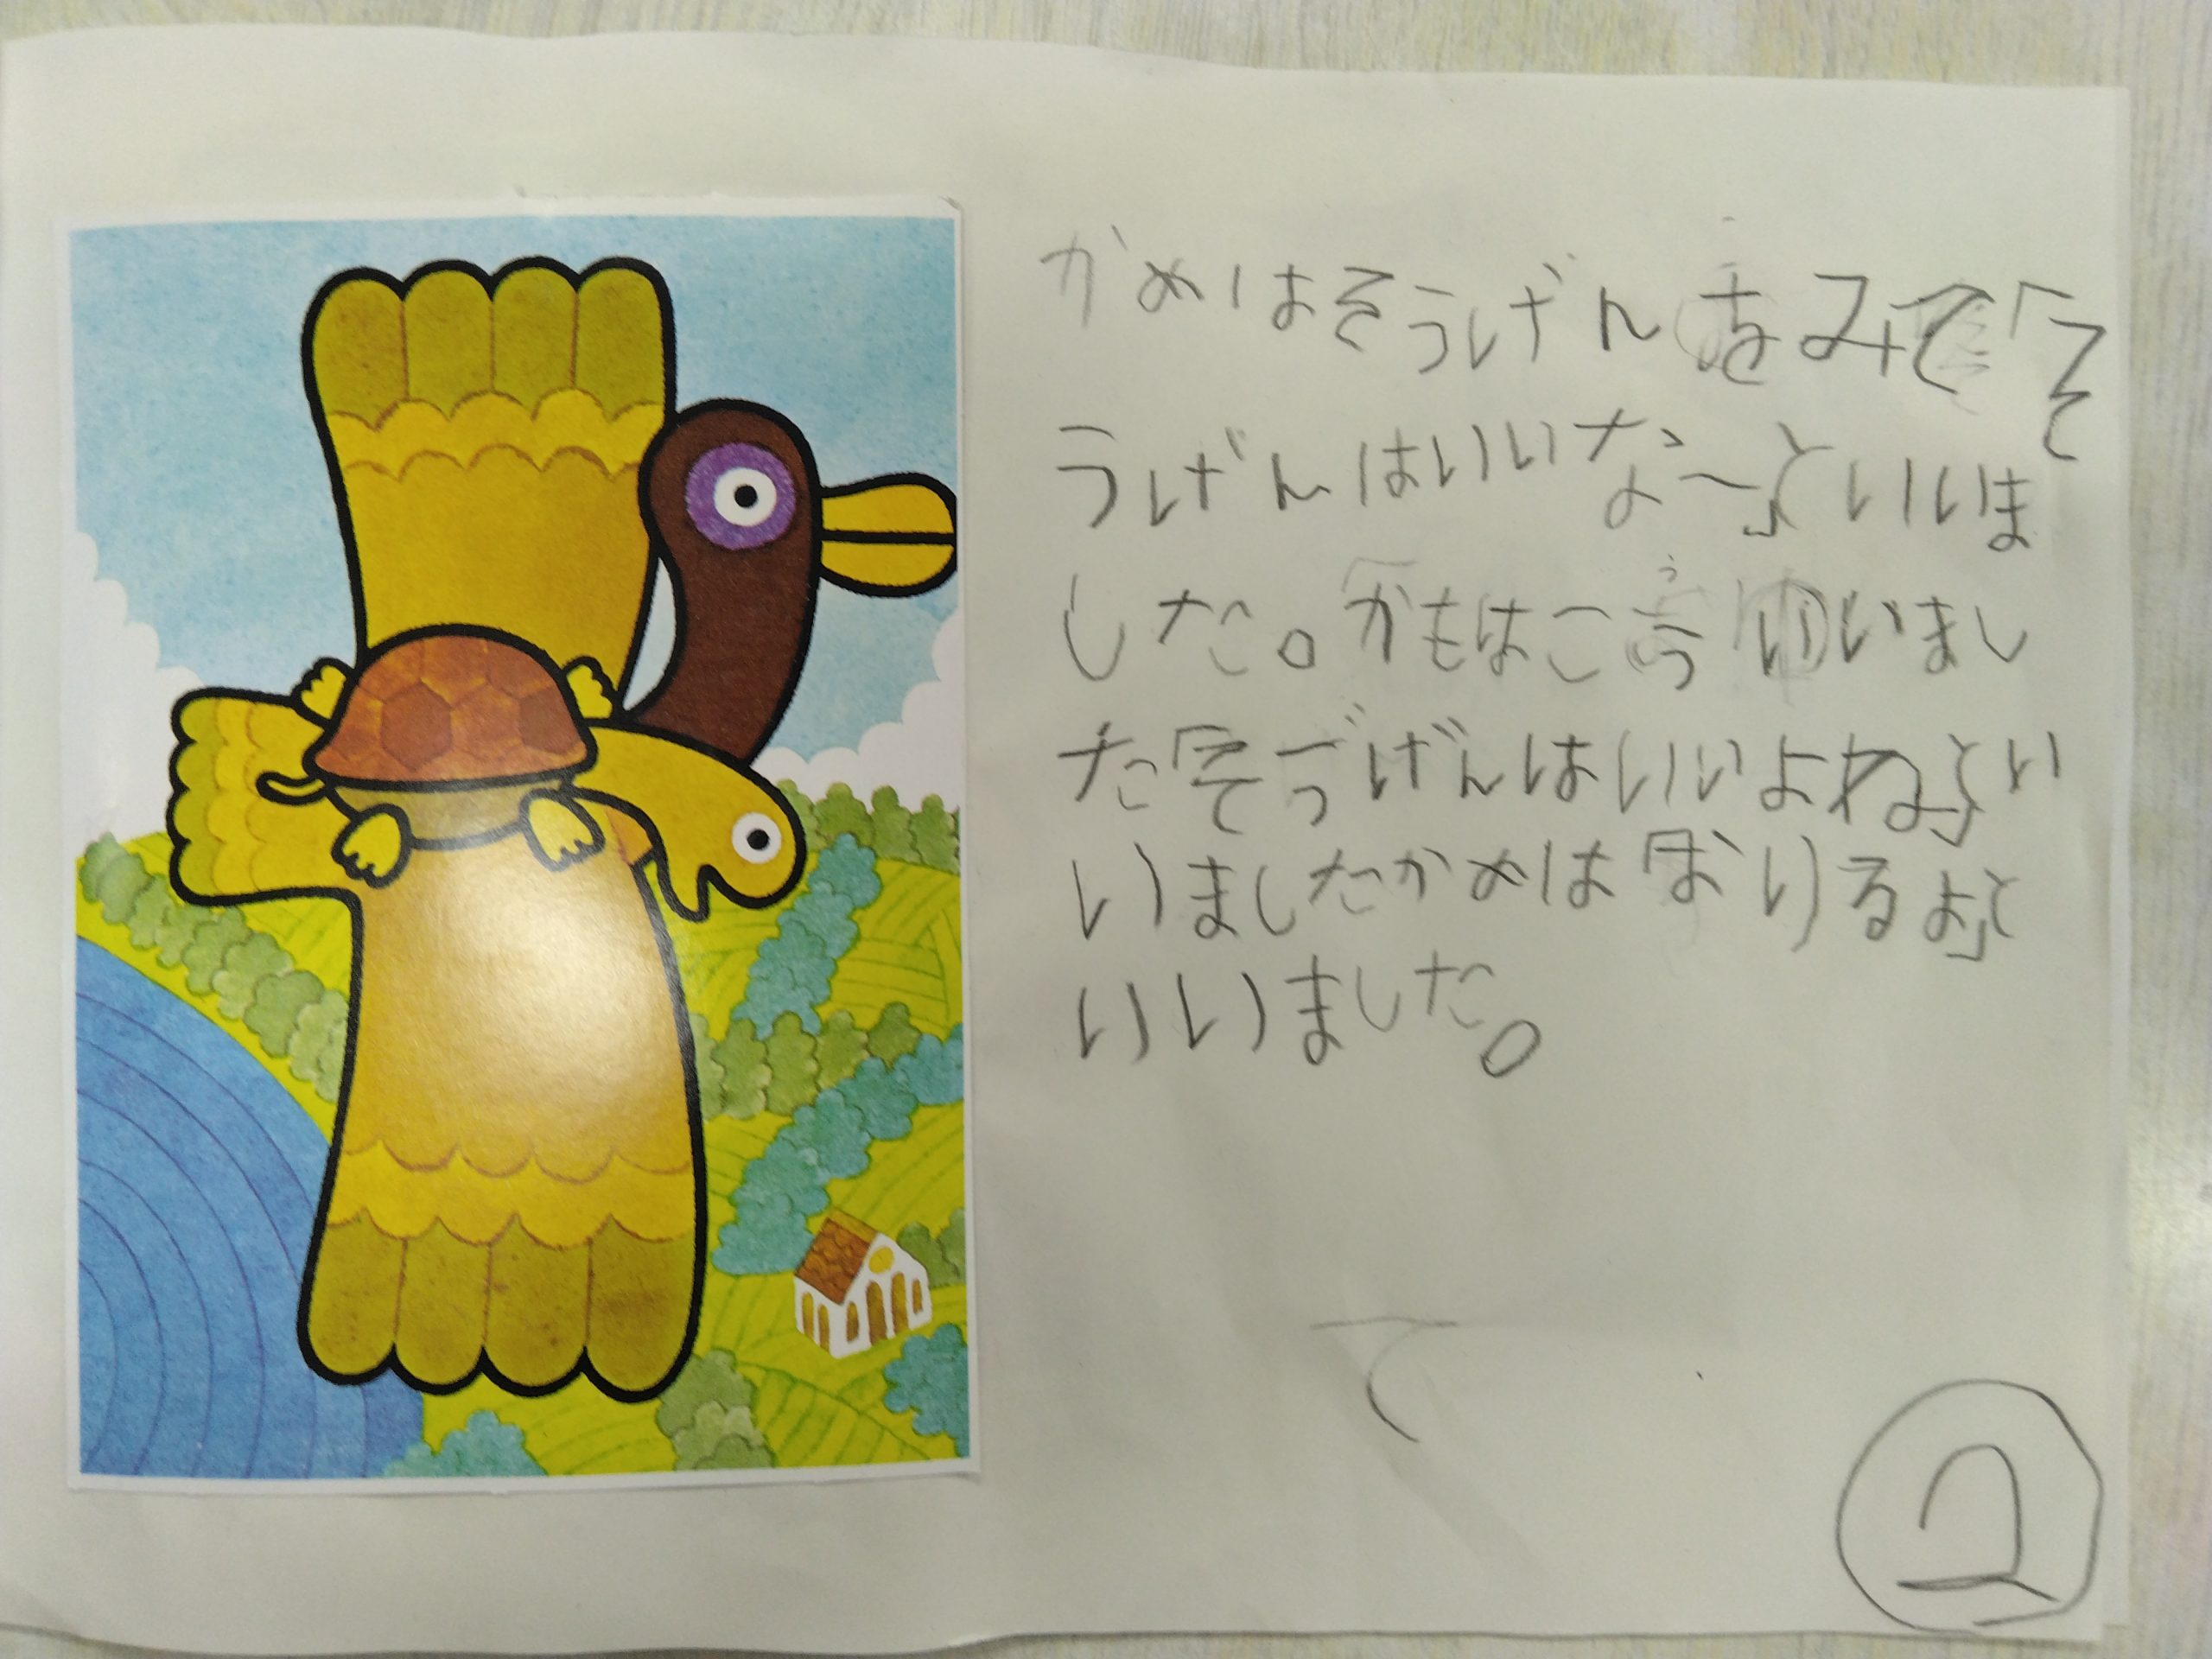 かめはそうげんをみて「そ
うげんはいいな～」といいま
した。かもはこういいまし
た「そうげんはいいよね」とい
いましたかめは「おりるよ」と
いいました。
て
2